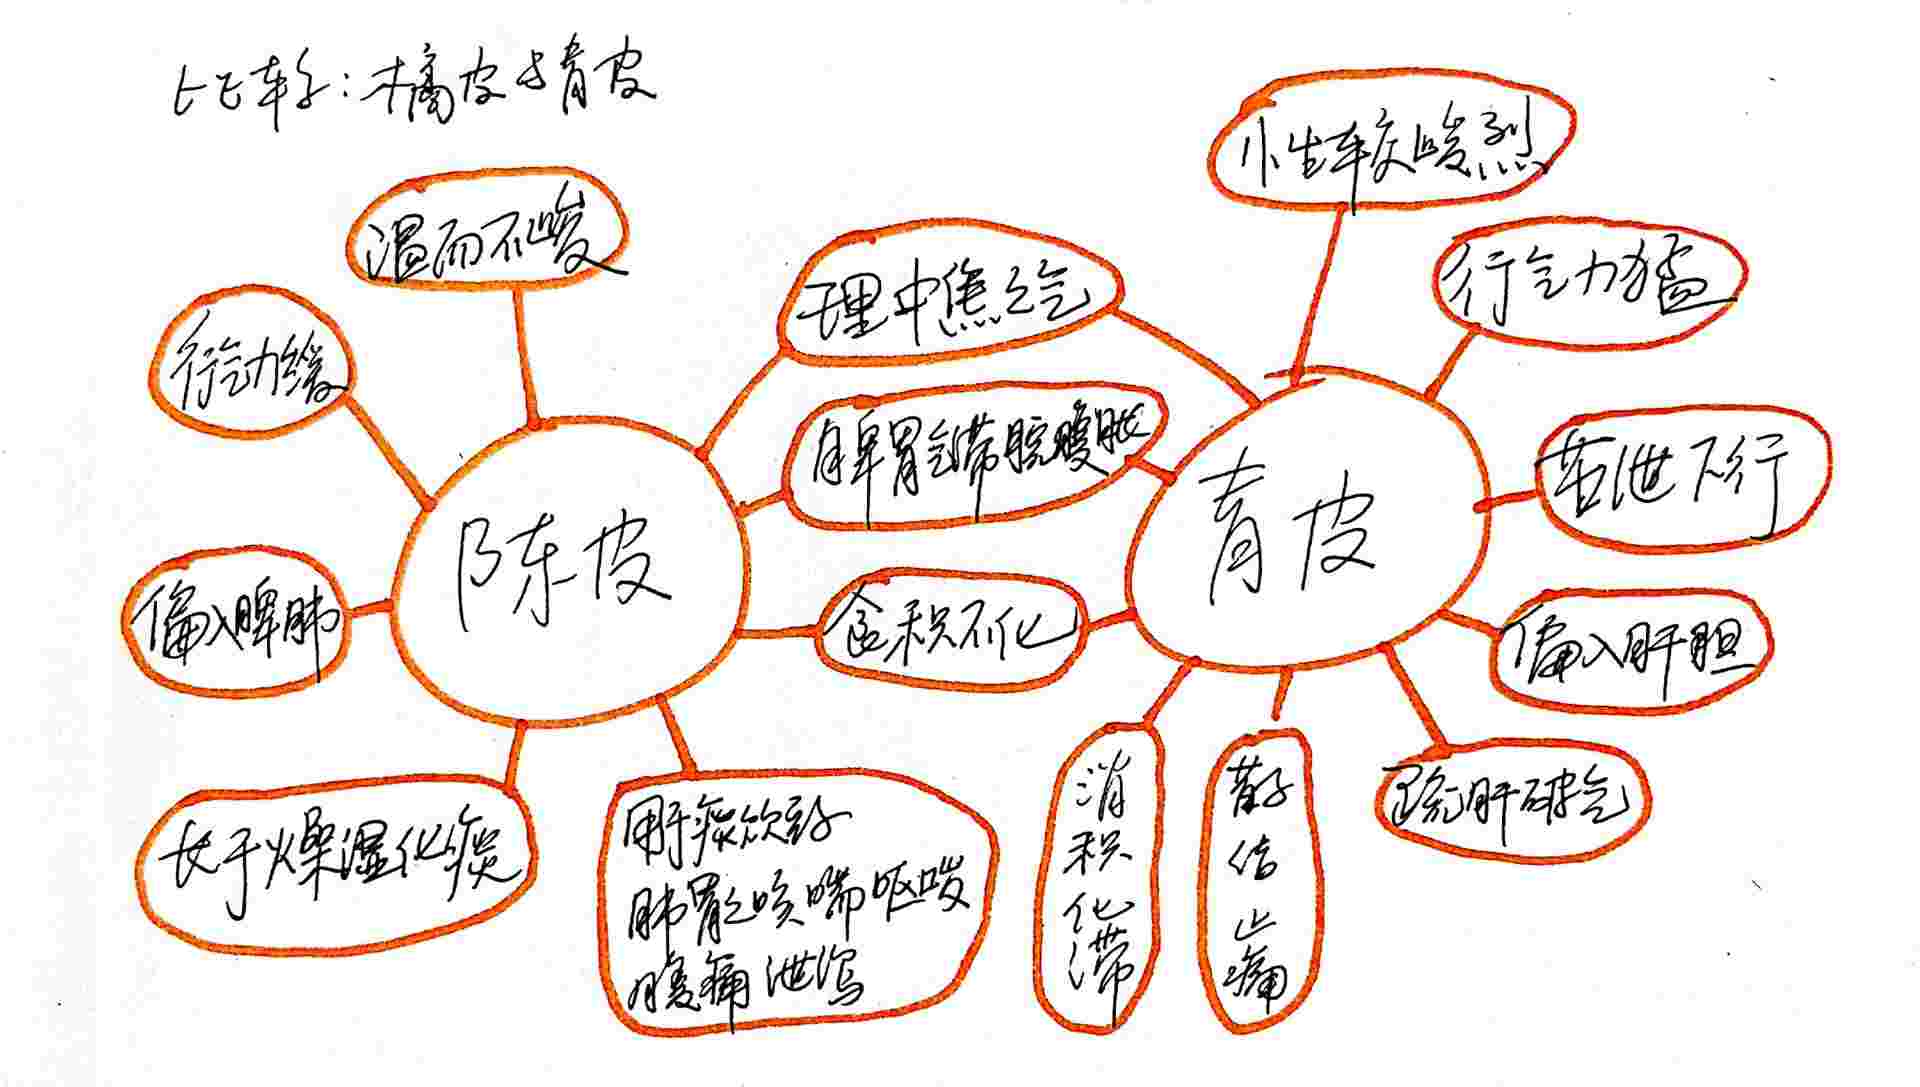 比较:橘皮与青皮
温而不峻
行气力缓
偏入脾肺
长于燥湿化痰
陈皮
用于痰饮
肺胃 咳喘呕
腹痛泄泻
理中焦之气
脾胃气滞脘腹胀
食积不化
青皮
性较峻烈
行气力猛
苦泄下行
偏入肝胆
疏肝破气
散结止痛
消积化滞